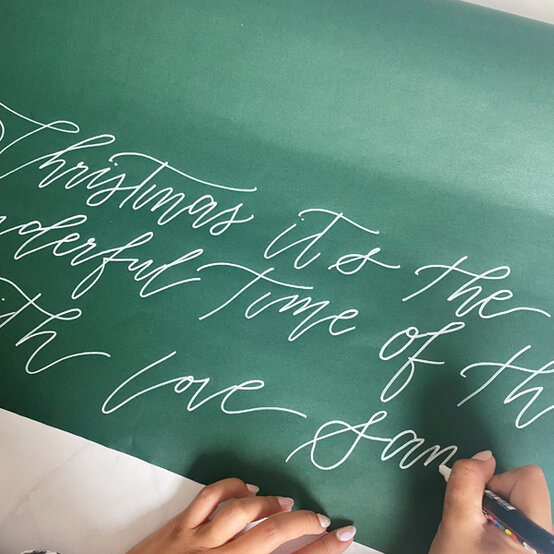 Christmas it's the
nderful Time of th
ith love San